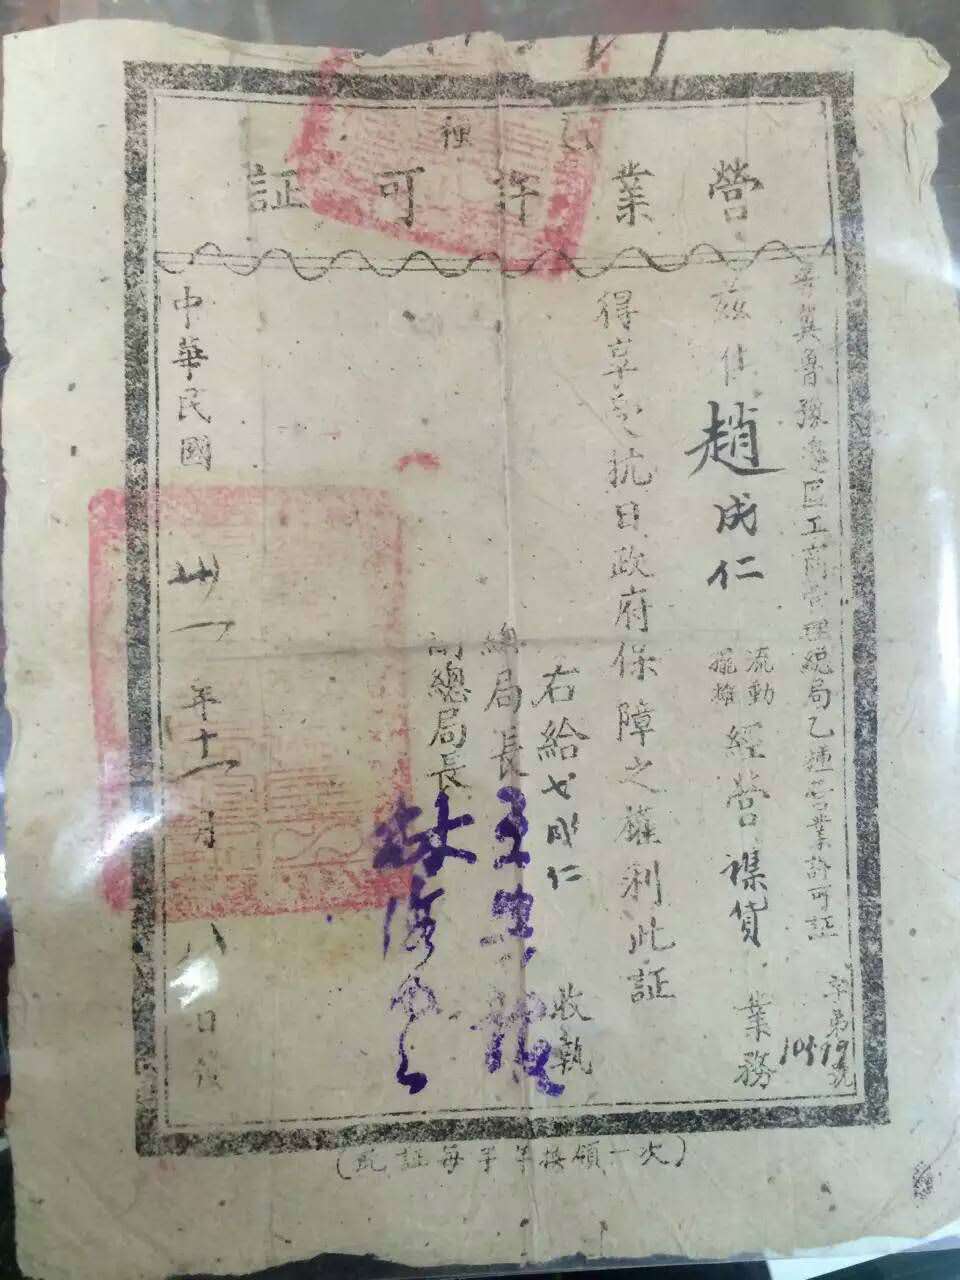 乙種
營業許可証
晉冀魯豫邊區工商管理總局乙種營業許可証
字第10499號
茲供趙成仁
流動
擺攤
經營襍貨業務
得享受抗日政府保障之權利此証
右給成仁收執
總局長王
副總局長林海雲
中華民國卅一年十一月八日
(此証每半年換領一次)